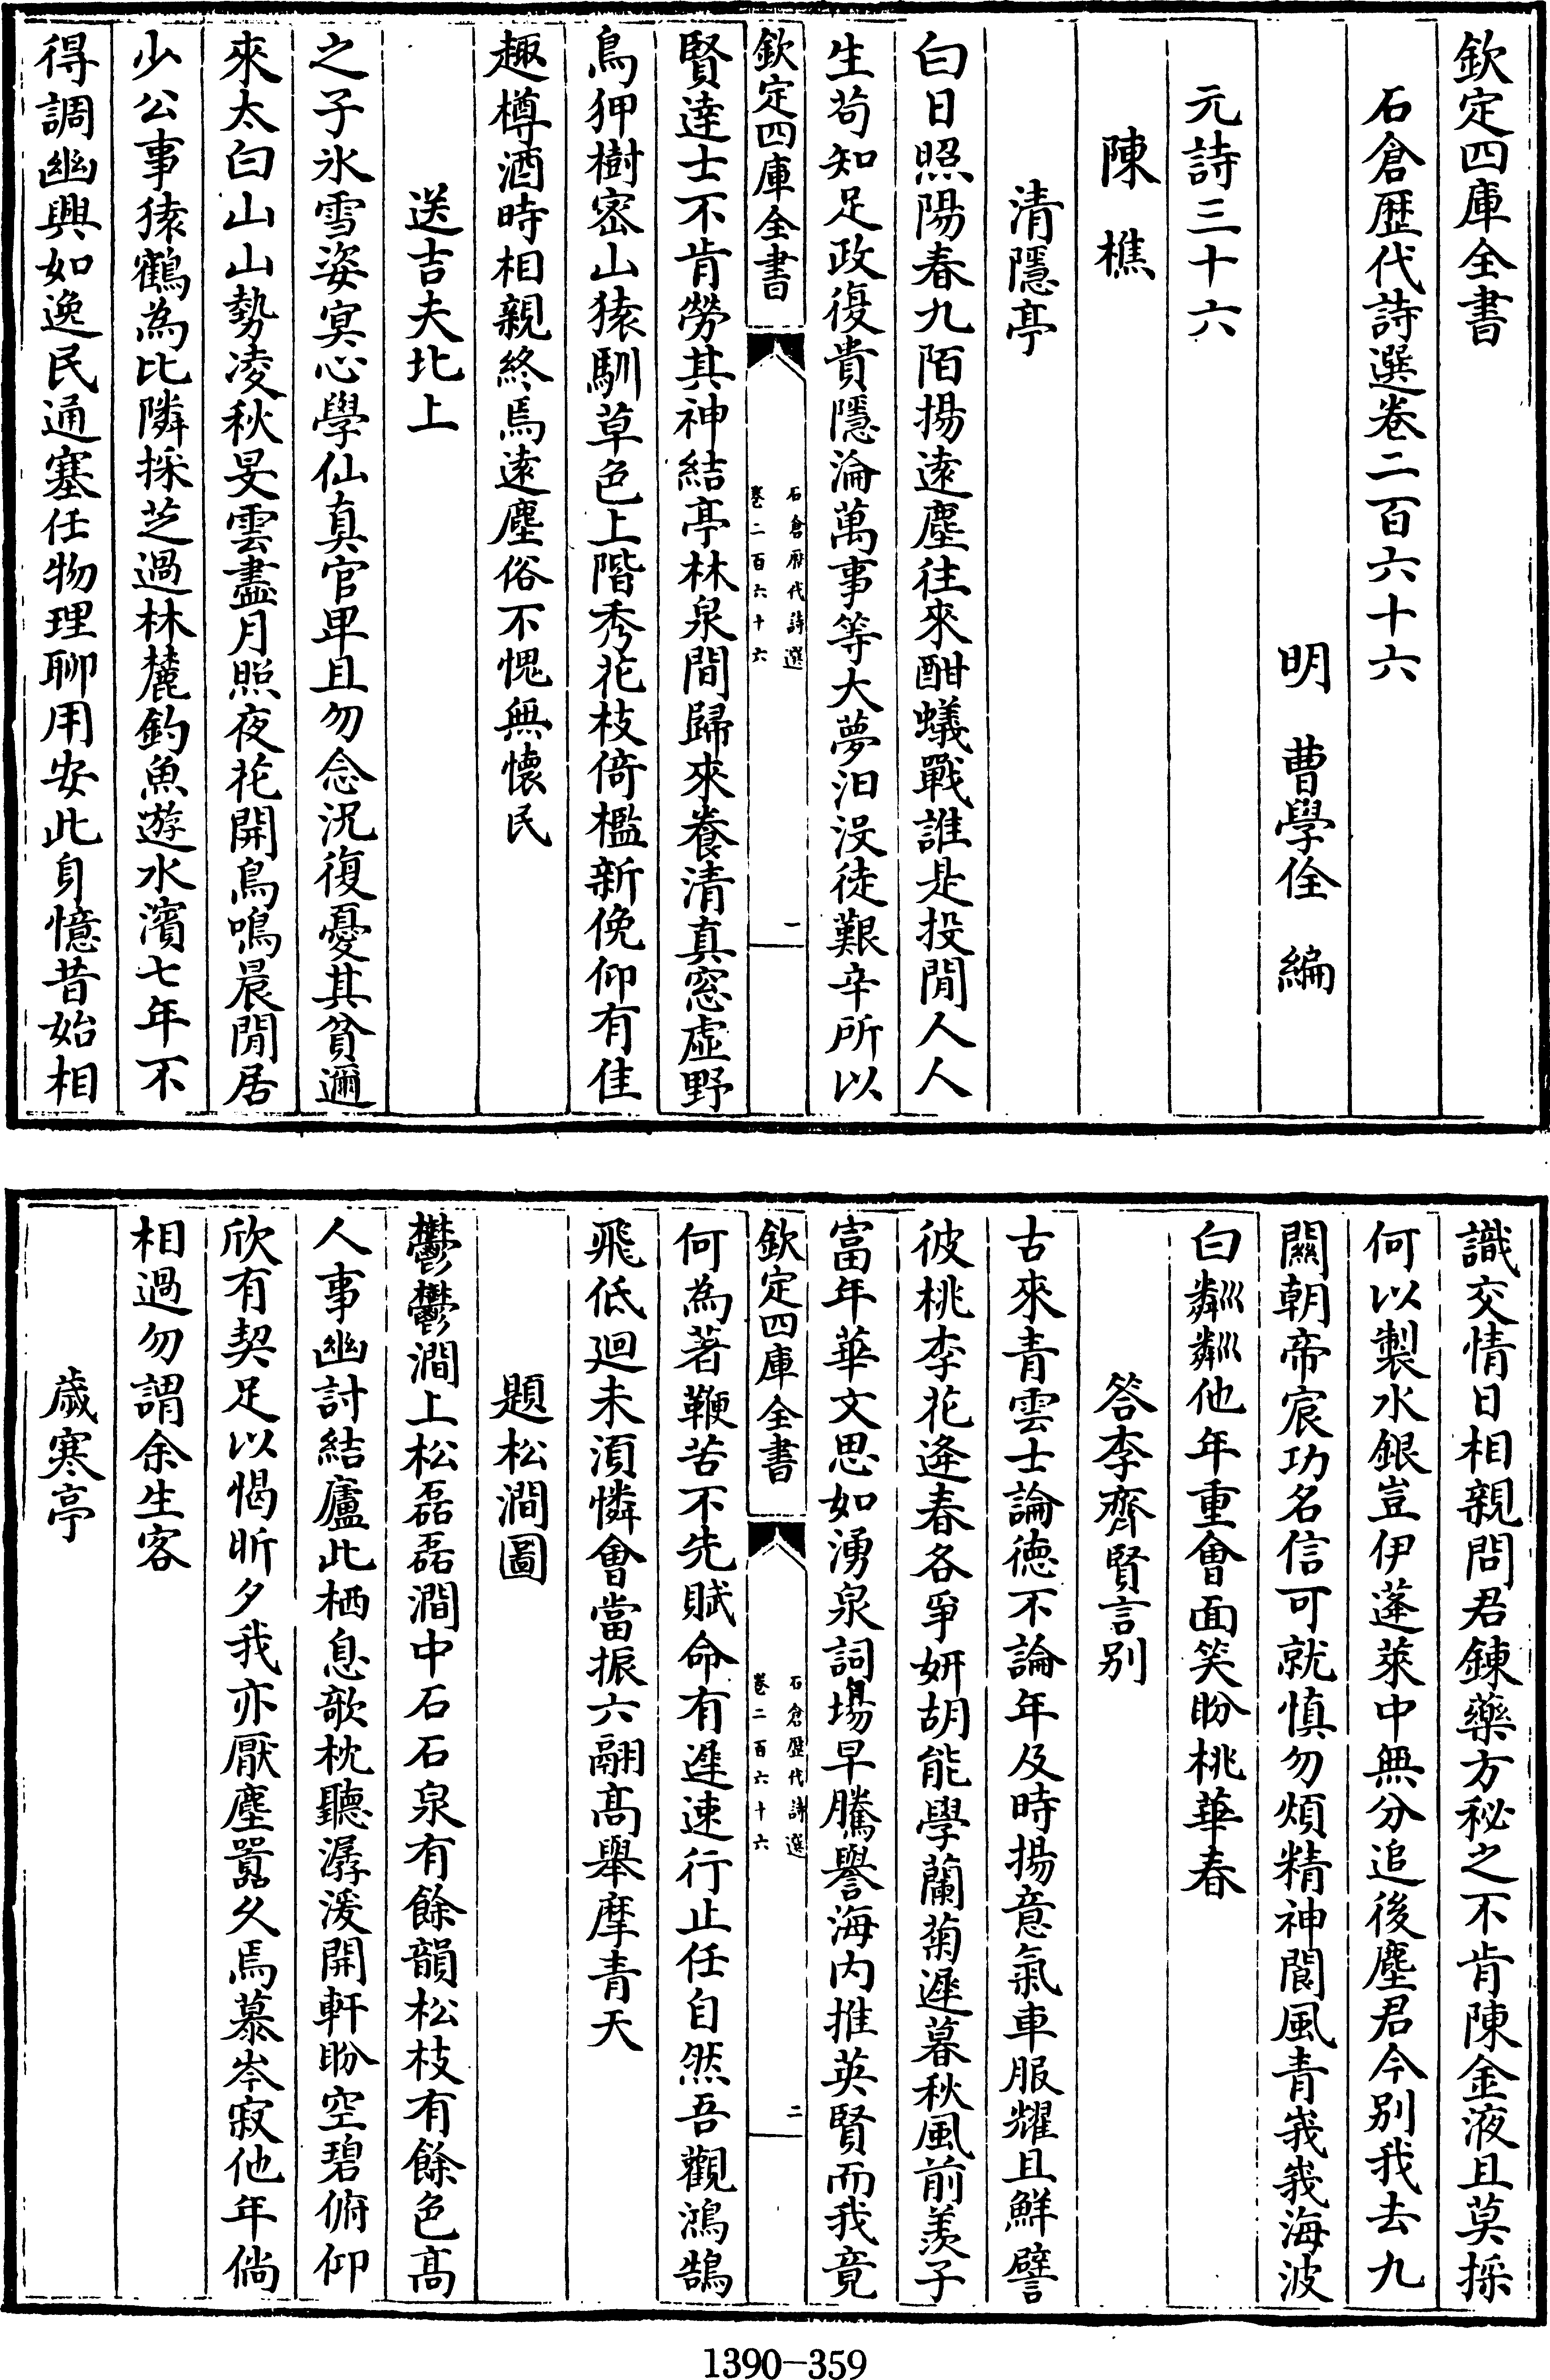 欽定四庫全書
石倉歴代詩選卷二百六十六
明　曹學佺　編
元詩三十六
陳樵
清隱亭
白日照陽春九陌揚遠塵往來酣蟻戰誰是投閒人人
生苟知足政復貴隱淪萬事等大夢汩没徒艱辛所以
欽定四庫全書
石倉歴代詩選
卷二百六十六
一
賢達士不肯勞其神結亭林泉間歸來養清真窓虚野
鳥狎樹密山猿馴草色上階秀花枝倚檻新俛仰有佳
趣樽酒時相親終焉遠塵俗不愧無懷民
送吉夫北上
之子氷雪姿冥心學仙真官卑且勿念況復憂其貧邇
來太白山山勢凌秋旻雲盡月照夜花開鳥鳴晨閒居
少公事猿鶴為比隣採芝過林麓釣魚遊水濱七年不
得調幽興如逸民通塞任物理聊用安此身憶昔始相
識交情日相親問君錬藥方秘之不肯陳金液且莫採
何以製水銀豈伊蓬萊中無分追後塵君今别我去九
闗朝帝宸功名信可就慎勿煩精神閬風青峩峩海波
白粼粼他年重會面笑盼桃華春
答李齊賢言别
古來青雲士論徳不論年及時揚意氣車服耀且鮮譬
彼桃李花逢春各爭妍胡能學蘭菊遲暮秋風前羨子
富年華文思如湧泉詞場早騰譽海内推英賢而我竟
欽定四庫全書
石倉歴代詩選
卷二百六十六
二
何為著鞭苦不先賦命有遲速行止任自然吾觀鴻鵠
飛低迴未湏憐會當振六翮高舉摩青天
題松澗圖
鬱鬱澗上松磊磊澗中石石泉有餘韻松枝有餘色高
人事幽討結廬此栖息欹枕聽潺湲開軒盼空碧俯仰
欣有契足以愒昕夕我亦厭塵囂久焉慕岑寂他年倘
相過勿謂余生客
歳寒亭
1390-359